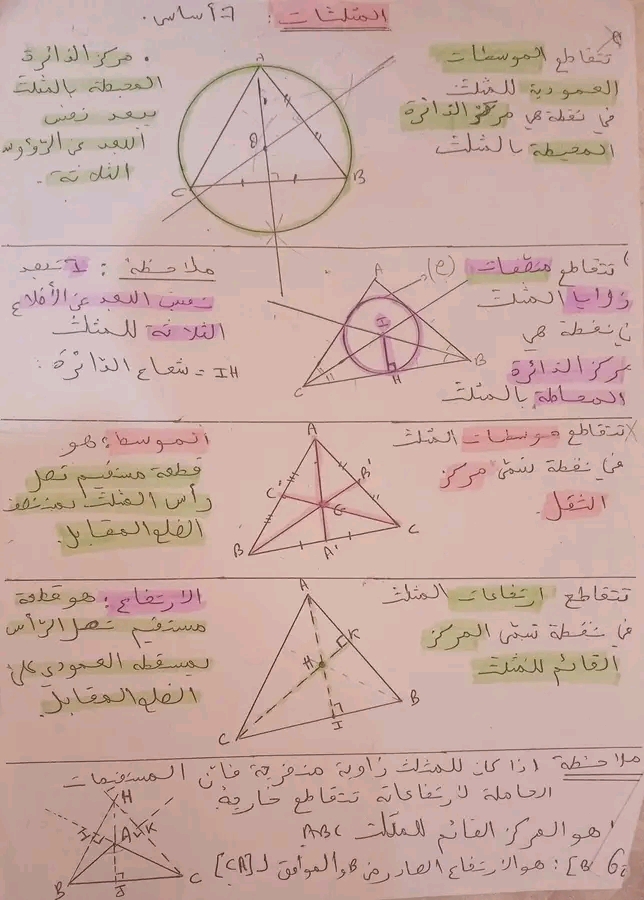 المثلثات : 7 أساسي.
تتقاطع الموسطات
العمودية للمثلث
في نقطة هي مركز الدائرة
المحيطة بالمثلث
. مركز الدائرة
المحيطة بالمثلث
يبعد نفس
البعد عن الرؤوس
الثلاثة.
A
O
C
B
تتقاطع منصفات
زوايا المثلث
في نقطة هي
مركز الدائرة
المحاطة بالمثلث
ملاحظة : I تبعد
نفس البعد عن الأضلاع
الثلاثة للمثلث
IH = شعاع الدائرة
A
I
C
H
B
تتقاطع موسطات المثلث
في نقطة تسمى مركز
الثقل.
الموسط: هو
قطعة مستقيم تصل
رأس المثلث بمنتصف
الضلع المقابل.
A
C'
B'
G
B
A'
C
تتقاطع ارتفاعات المثلث
في نقطة تسمى المركز
القائم للمثلث
الارتفاع: هو قطعة
مستقيم تصل الرأس
بمسقطه العمودي على
الضلع المقابل.
A
K
H
B
I
C
ملاحظة اذا كان للمثلث زاوية منفرجة فإن المستقيمات
الحاملة لارتفاعاته تتقاطع خارجه
هو المركز القائم للمثلث ABC
هو الارتفاع الصادر من B والموافق لـ [CA]
H
I
A
K
B
J
C